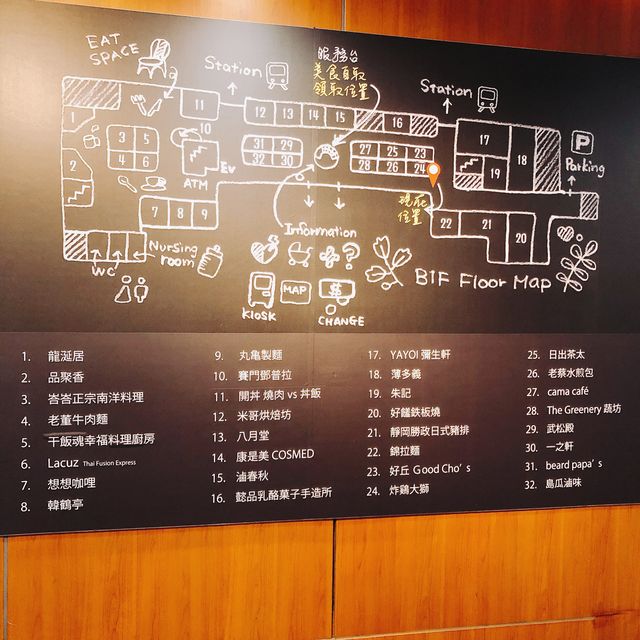 EAT
SPACE
Station
服務台
美食自取
領取位置
Station
Parking
P
1
2
3
5
4
6
7
8
9
10
11
12
13
14
15
16
17
18
19
20
21
22
23
24
25
26
27
28
29
30
31
32
EV
ATM
現在
位置
Nursing
room
WC
Information
?
MAP
$
KIOSK
CHANGE
B1F Floor Map
1. 龍涎居
2. 品聚香
3. 峇峇正宗南洋料理
4. 老董牛肉麵
5. 干飯魂幸福料理廚房
6. Lacuz Thai Fusion Express
7. 想想咖哩
8. 韓鶴亭
9. 丸亀製麵
10. 賽門鄧普拉
11. 開丼 燒肉 vs 丼飯
12. 米哥烘焙坊
13. 八月堂
14. 康是美 COSMED
15. 滷春秋
16. 懿品乳酪菓子手造所
17. YAYOI 彌生軒
18. 薄多義
19. 朱記
20. 好饈鉄板燒
21. 靜岡勝政日式豬排
22. 錦拉麵
23. 好丘 Good Cho's
24. 炸鷄大獅
25. 日出茶太
26. 老蔡水煎包
27. cama café
28. The Greenery 蔬坊
29. 武松殿
30. 一之軒
31. beard papa's
32. 島瓜滷味